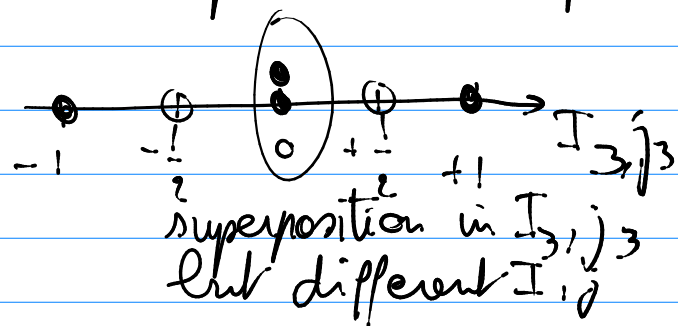 -1 -1/2 0 +1/2 +1 I3,j3
superposition in I3,j3
but different I,j